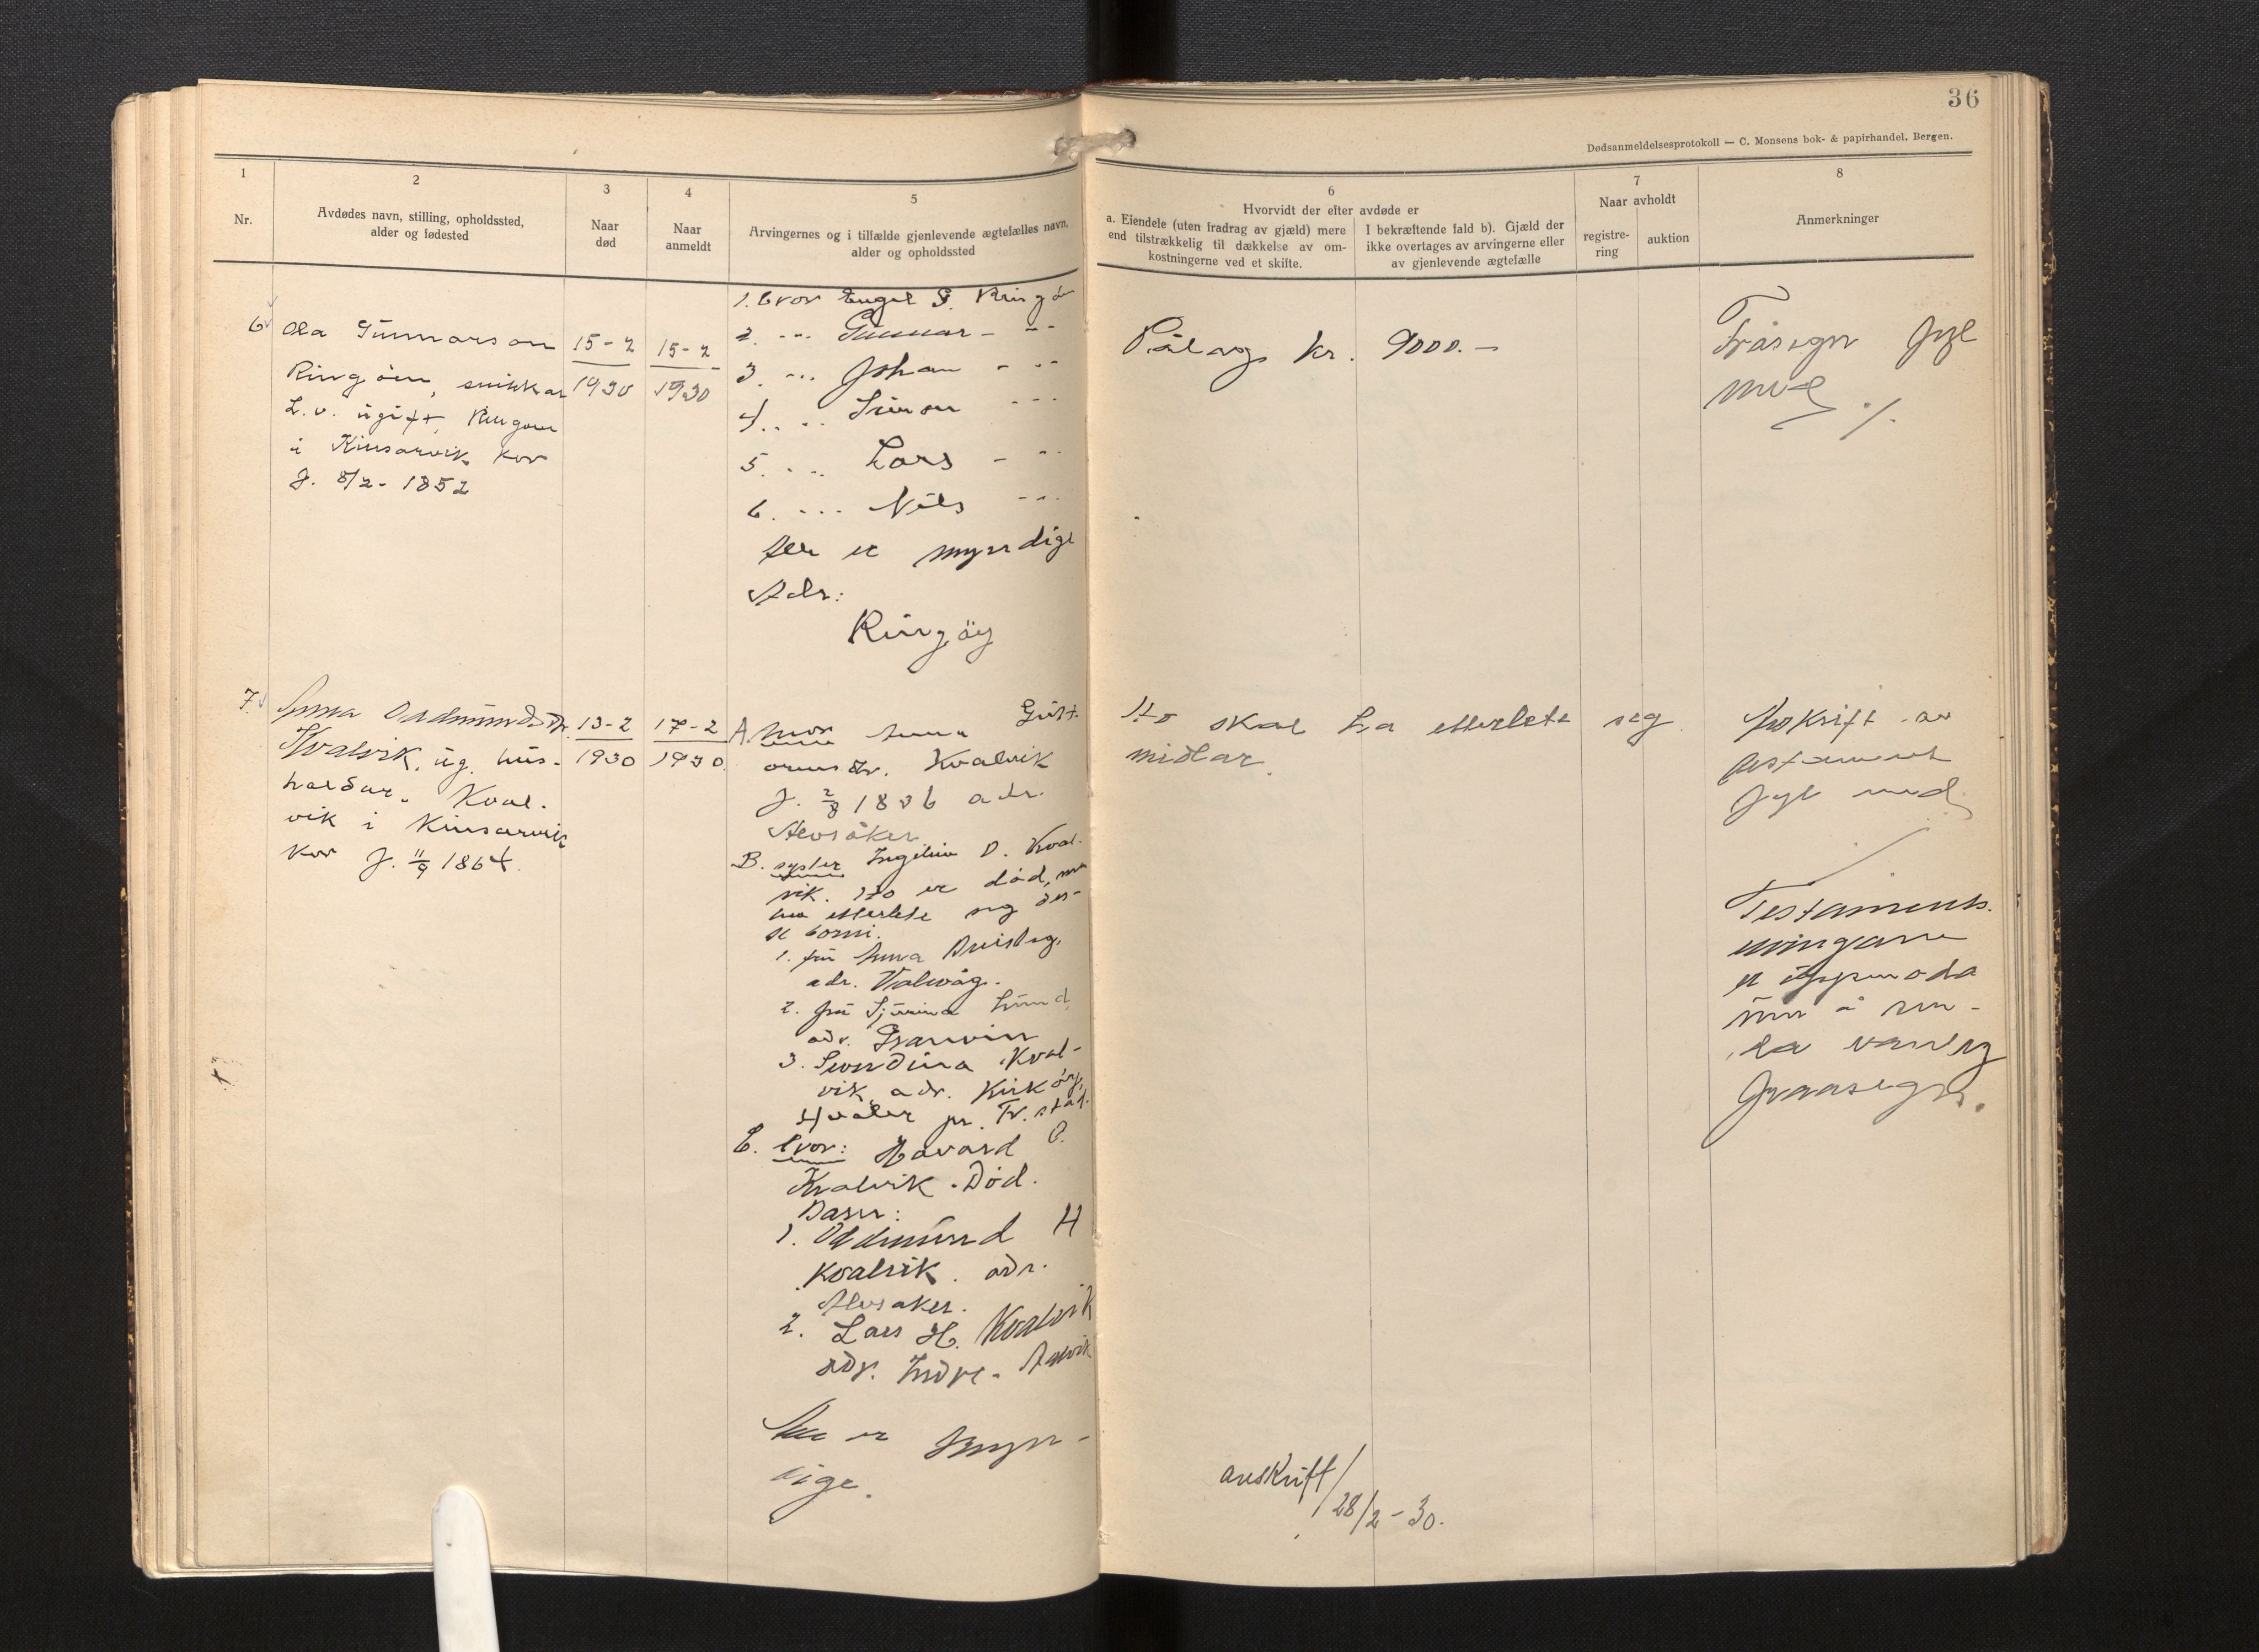 36
Dødsanmeldelsesprotokoll — C. Monsens bok- & papirhandel, Bergen.
1
Nr.
2
Avdødes navn, stilling, opholdssted,
alder og fødested
3
Naar
død
4
Naar
anmeldt
5
Arvingernes og i tilfælde gjenlevende ægtefælles navn,
alder og opholdssted
6
Hvorvidt der efter avdøde er
a. Eiendele (uten fradrag av gjæld) mere
end tilstrækkelig til dækkelse av om-
kostningerne ved et skifte.
I bekræftende fald b). Gjæld der
ikke overtages av arvingerne eller
av gjenlevende ægtefælle
7
Naar avholdt
registre-
ring
auktion
8
Anmerkninger
6
Ola Gunnarson
Ringöen, snikkar
L.v. ugift, Ringöen
i Kinsarvik kor
f. 8/2- 1852
15-2
1930
15-2
1930
1. bror Engel G. Ringöen
2. --- Gunnar - --
3. --- Johan - --
4. --- Simon ---
5. --- Lars - --
6. --- Nils ---
Alle er myndige
Adr:
Ringöy
Pålag kr. 9000.-
Fråsegn fygl
med ./.
7.
Anna Oddmundsdtr.
Kvalvik, ug. hus-
haldar. Kval-
vik i Kinsarvik
kor f. 11/9 1864.
13-2
1930
17-2
1930.
A. Mor Anna Gutt-
ormsdtr. Kvalvik
f. 2/8 1836 adr.
Alvsåker
B. syster Ingeleiv O. Kval-
vik. Ho er död, men
har etterlete seg des-
se borni.
1. fru Anna
adr. Valevåg.
2. fru Sjurina Lund,
adr. Granvin
3. Svendina Kval-
vik, adr. Kirköy,
Hvaler pr. Fr.stad.
C. bror: Havard O.
Kvalvik. Död.
Born:
1. Oddmund H
Kvalvik. adr.
Alvsaker.
2. Lars H. Kvalvik
adr. Indre-Aalvik
Alle er myn-
dige.
Ho skal ha etterlete seg
midlar.
Avskrift av
testament
fygl med.
Testaments-
ervingane
er oppmoda
um å sen-
da vanleg
fraasegn.
avskrift/28/2-30.